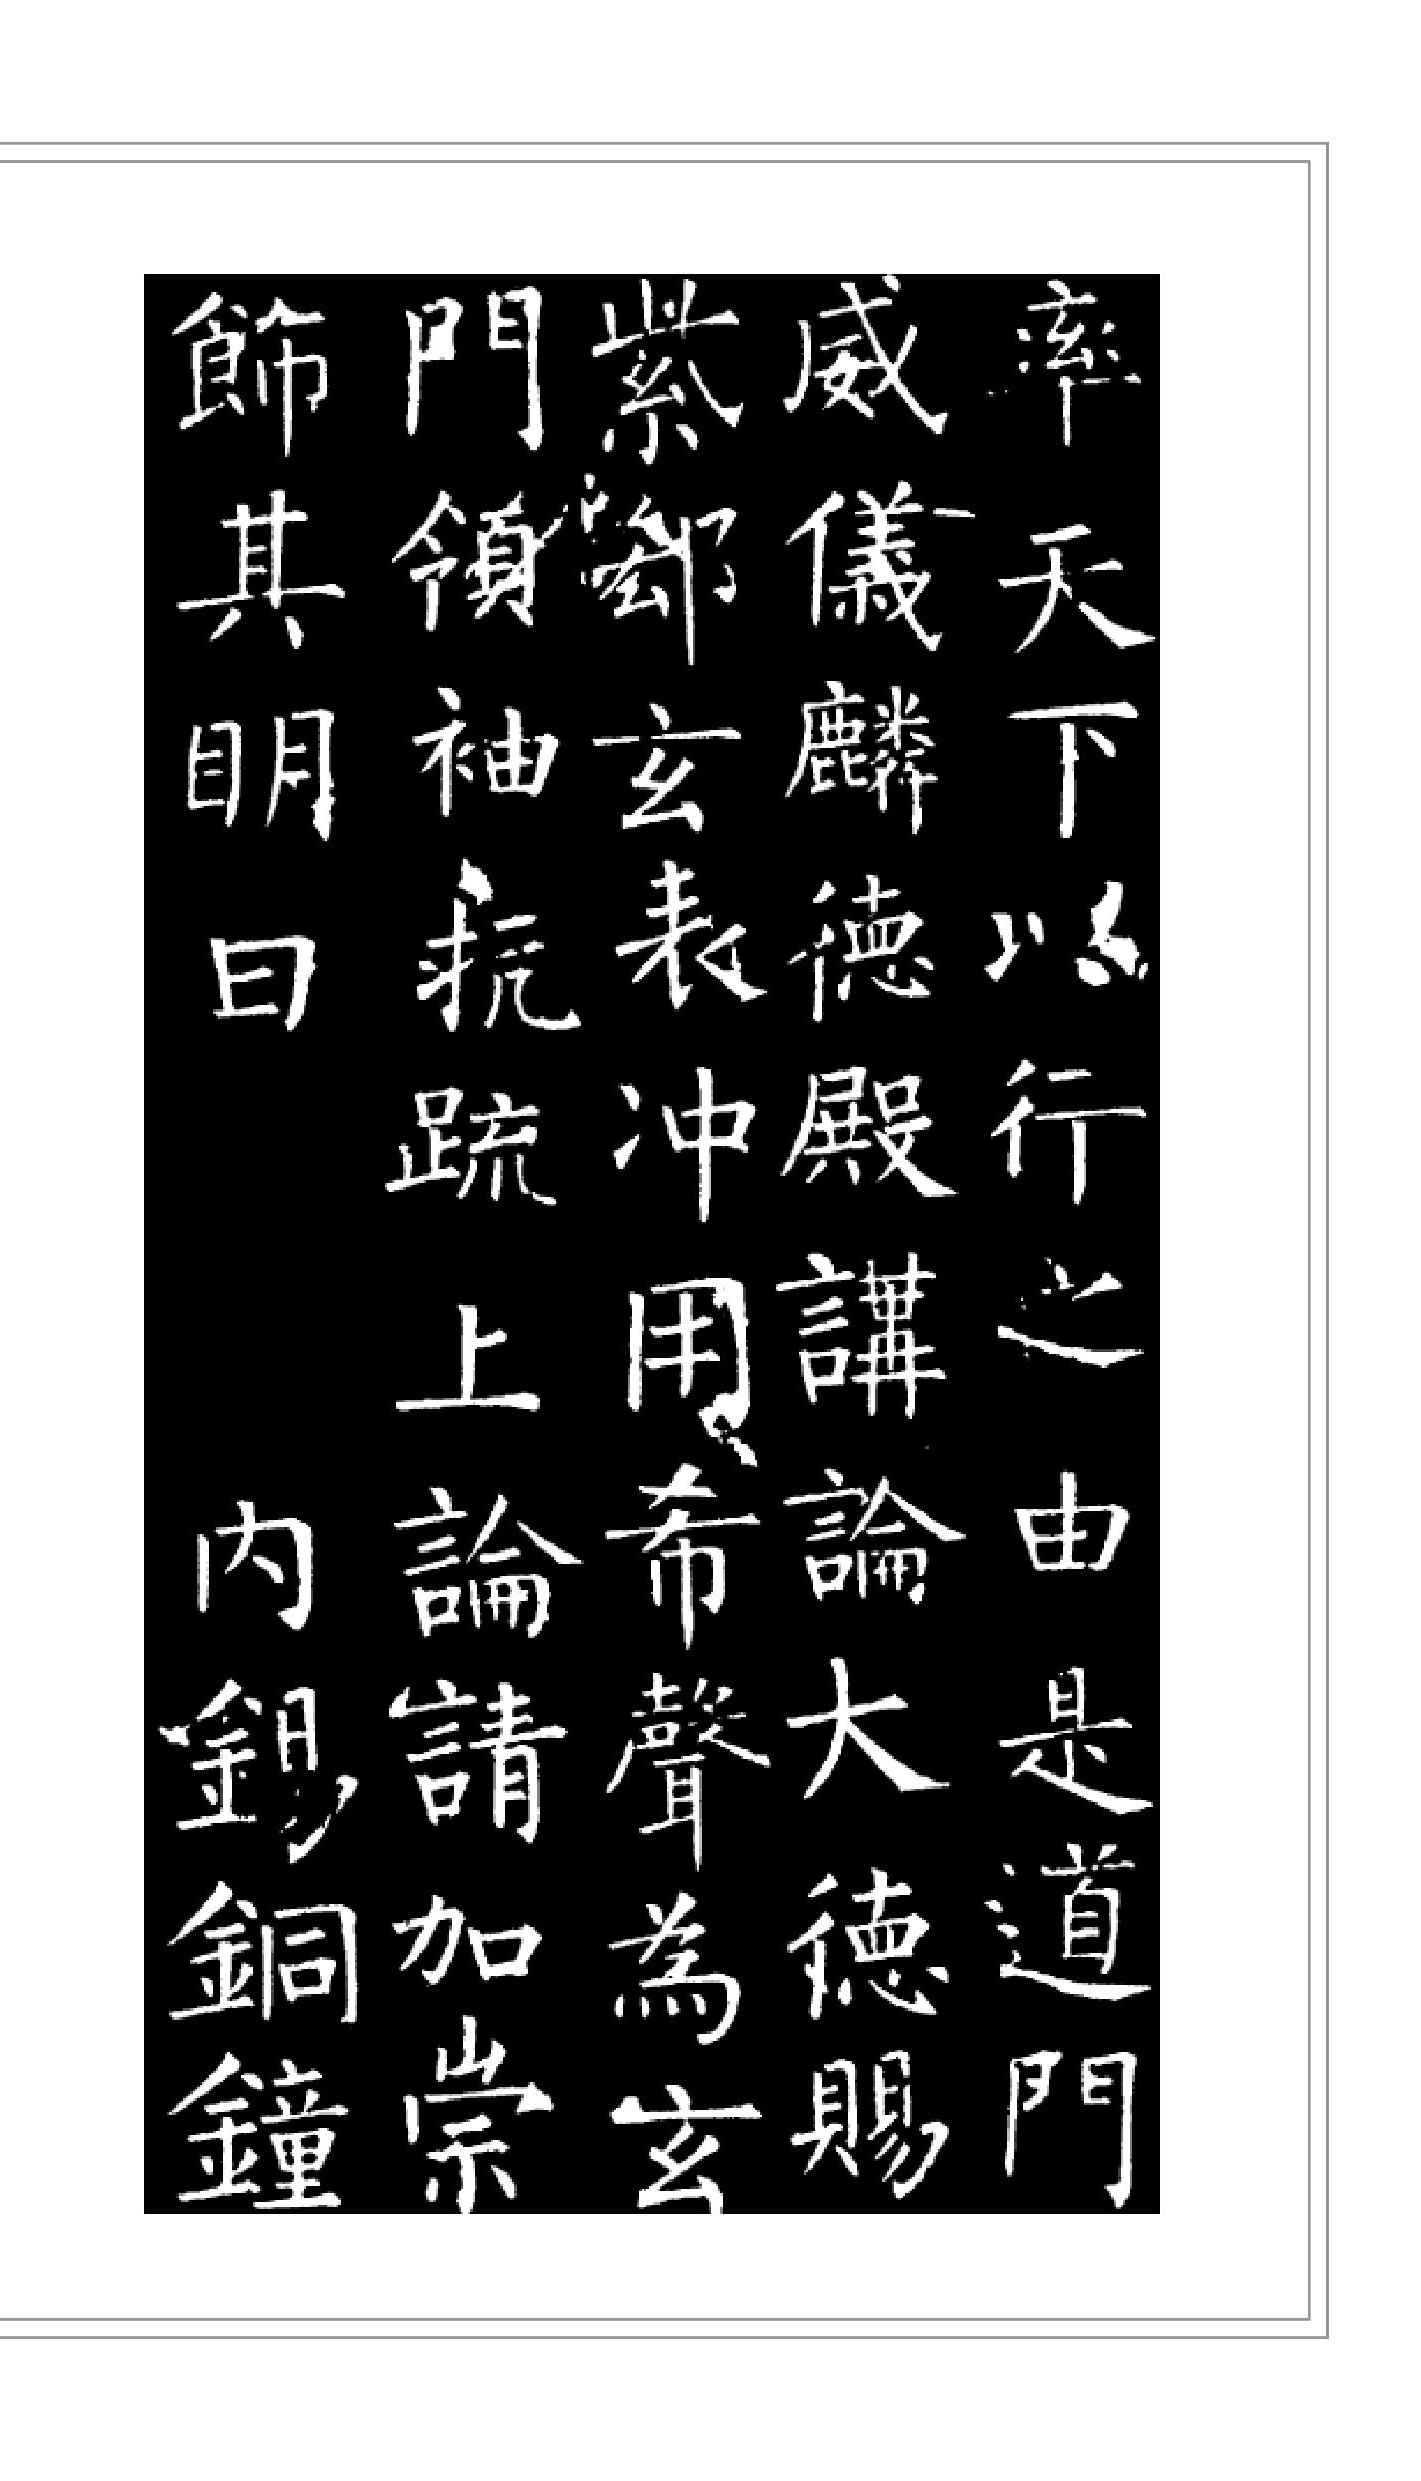 率天下以行之由是道門
威儀麟德殿講論大德賜
紫鄒玄表冲用希聲為玄
門領袖抗疏上論請加崇
飾其眀日 内錫銅鐘